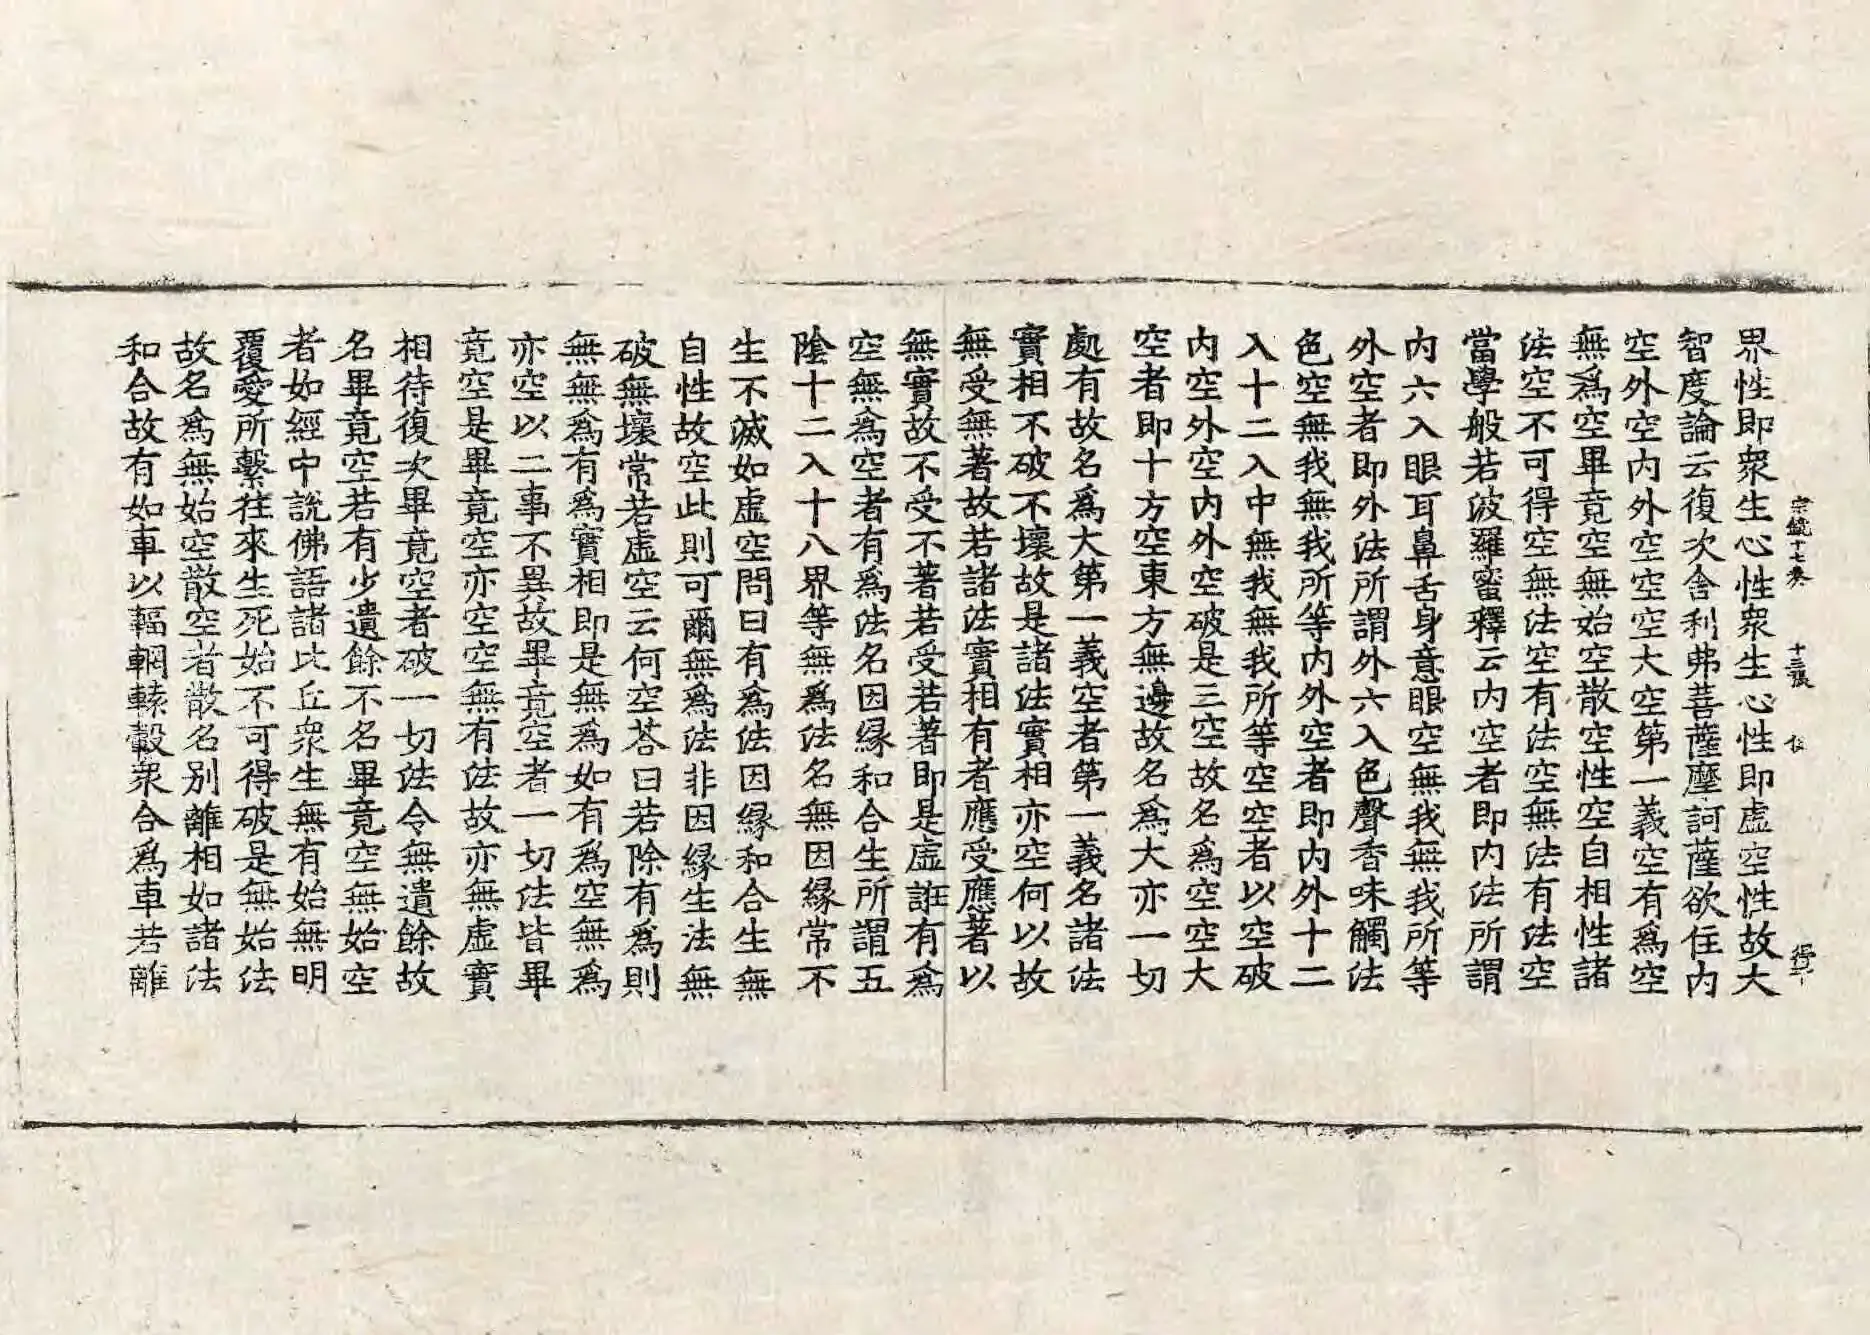 宗鏡十 卷 十三張
界性即衆生心性衆生心性即虛空性故大
智度論云復次舍利弗菩薩摩訶薩欲住內
空外空內外空空空大空第一義空有爲空
無爲空畢竟空無始空散空性空自相性諸
法空不可得空無法空有法空無法有法空
當學般若波羅蜜釋云內空者即內法所謂
內六入眼耳鼻舌身意眼空無我無我所等
外空者即外法所謂外六入色聲香味觸法
色空無我無我所等內外空者即內外十二
入十二入中無我無我所等空空者以空破
內空外空內外空破是三空故名爲空空大
空者即十方空東方無邊故名爲大亦一切
處有故名爲大第一義空者第一義名諸法
實相不破不壞故是諸法實相亦空何以故
無受無著故若諸法實相有者應受應著以
無實故不受不著若受若著即是虛誑有爲
空無爲空者有爲法名因緣和合生所謂五
陰十二入十八界等無爲法名無因緣常不
生不滅如虛空問曰有爲法因緣和合生無
自性故空此則可爾無爲法非因緣生法無
破無壞常若虛空云何空荅曰若除有爲則
無無爲有爲實相即是無爲如有爲空無爲
亦空以二事不異故畢竟空者一切法皆畢
竟空是畢竟空亦空空無有法故亦無虛實
相待復次畢竟空者破一切法令無遺餘故
名畢竟空若有少遺餘不名畢竟空無始空
者如經中說佛語諸比丘衆生無有始無明
覆愛所繫往來生死始不可得破是無始法
故名爲無始空散空者散名別離相如諸法
和合故有如車以輻輞轅轂衆合爲車若離